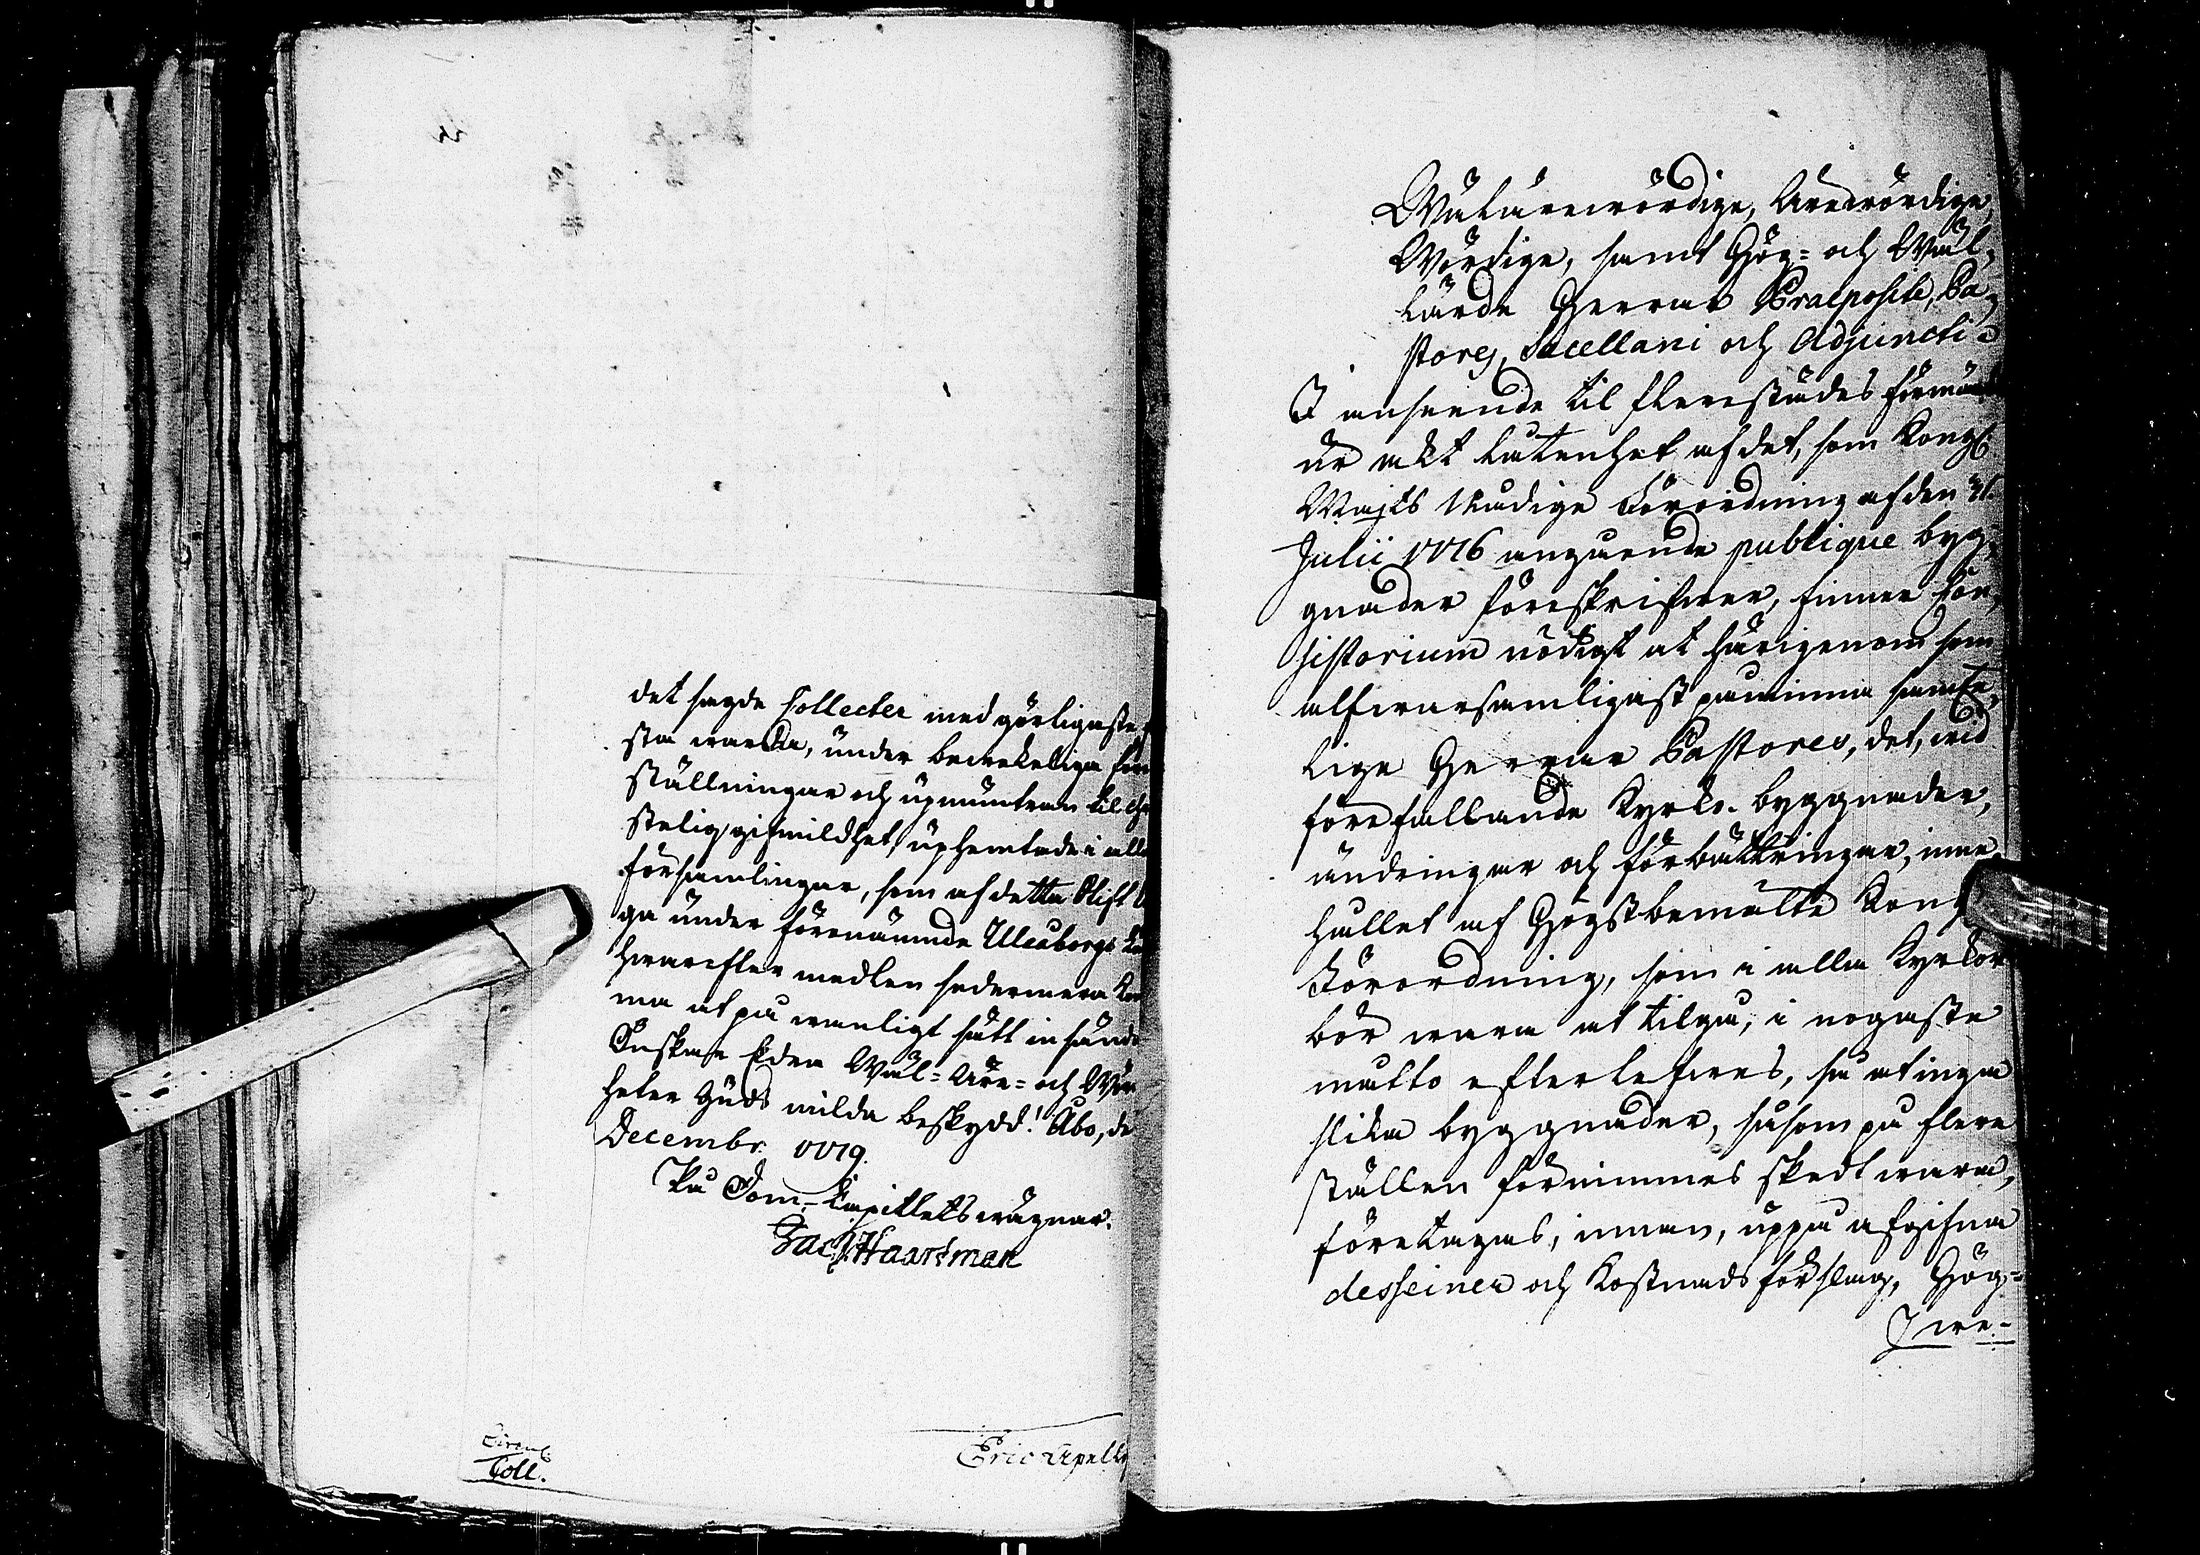 det sagde Collecter med görligaste
sta warda, under bewekeliga före
ställningar och upmuntran til Chri
stelig gifmildhet, uphemtade i alla
församlingar, som af detta Stift
ga under förenämnde Uleaborgs
hwarefter medlen sedermera kom
ma at på wanligt sätt insändas
Önskar Eder Wäl- Äre- och Wör
heter Guds milda beskydd! Åbo, de
Decembr. 1779.
På Dom-Kapitlets wägnar.
Jac. Haartman
Circul.
Coll.
Eric Apell
Wälärewördige, Ärewördige,
Wördige, samt Hög- och Wäl-
lärde Herrar Praepositi, Pa-
stores, Sacellani och Adjuncti
I anseende til flerestädes förmärkt
är akt låtenhet af det, som Kongl.
Maj:ts Nådige Förordning af den 31.
Julii 1776 angående publique byg-
gnader föreskrifwer, finner Con-
sistorium nödigt at härigenom som
alfwarsamligast påminna samte-
lige Herrar Pastores, det, wid
förefallande Kyrko-byggnader,
ändringar och förbättringar, inne-
hållet af Högstbemälte Kongl.
Förordning, som i alla Kyrkor
bör wara at tilgå, i nogaste
måtto efterlefwes, så at inga
slika byggnader, såsom på flere
ställen förnimmes skedt wara,
företagas, innan, uppå afgifna
desseiner och Kostnadsförslag, Hög-
Jwe-